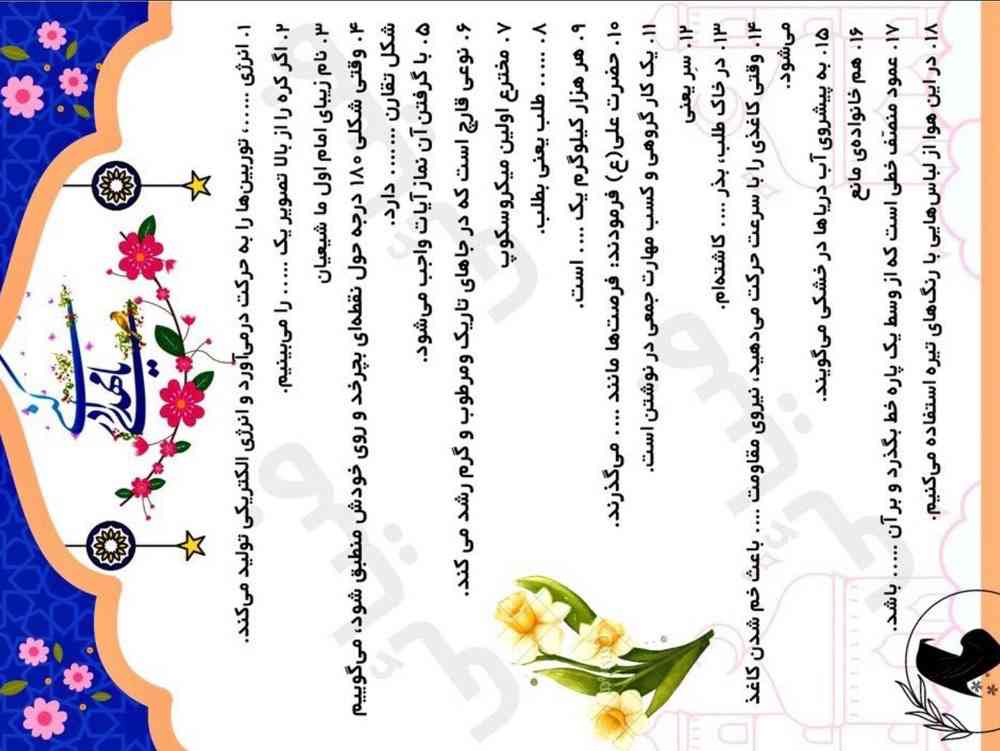 ۱. انرژی ......، توربین‌ها را به حرکت درمی‌آورد و انرژی الکتریکی تولید می‌کند.
۲. اگر کره را از بالا تصویر یک ..... را می‌بینیم.
۳. نام زیبای امام اول ما شیعیان
۴. وقتی شکلی ۱۸۰ درجه حول نقطه‌ای بچرخد و روی خودش منطبق شود، می‌گوییم
شکل تقارن ....... دارد.
۵. با گرفتن آن نماز آیات واجب می‌شود.
۶. نوعی قارچ است که در جاهای تاریک ومرطوب و گرم رشد می کند.
۷. مخترع اولین میکروسکوپ
۸. ...... طلب یعنی بطلب.
۹. هر هزار کیلوگرم یک .... است.
۱۰. حضرت علی(ع) فرمودند: فرصت‌ها مانند ..... می‌گذرند.
۱۱. یک کار گروهی و کسب مهارت جمعی در نوشتن است.
۱۲. سر یعنی
۱۳. در خاک طلب، بذر .... کاشته‌ام.
۱۴. وقتی کاغذی را با سرعت حرکت می‌دهید، نیروی مقاومت .... باعث خم شدن کاغذ
می‌شود.
۱۵. به پیشروی آب دریاها در خشکی می‌گویند.
۱۶. هم خانواده‌ی مانع
۱۷. عمود منصّف خطی است که از وسط یک پاره خط بگذرد و بر آن ..... باشد.
۱۸. در این هوا از لباس‌هایی با رنگ‌های تیره استفاده می‌کنیم.